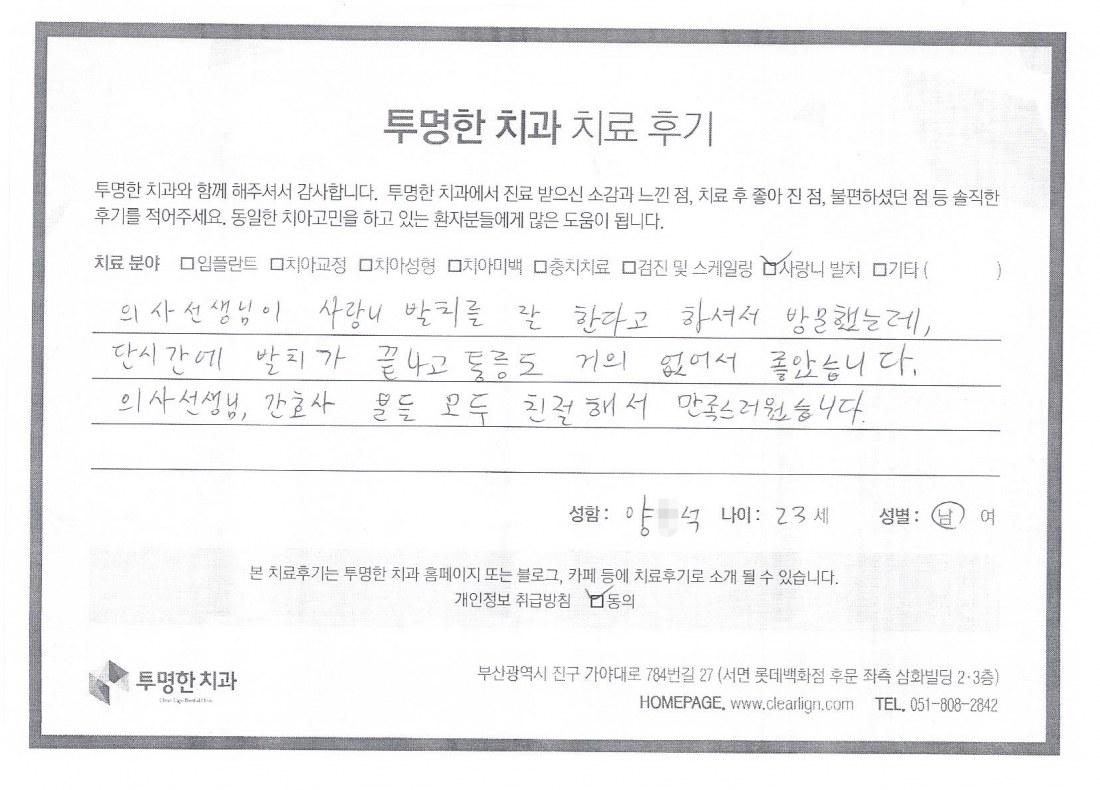 투명한 치과 치료 후기
투명한 치과와 함께 해주셔서 감사합니다. 투명한 치과에서 진료 받으신 소감과 느낀 점, 치료 후 좋아 진 점, 불편하셨던 점 등 솔직한
후기를 적어주세요. 동일한 치아고민을 하고 있는 환자분들에게 많은 도움이 됩니다.
치료 분야 □임플란트 □치아교정 □치아성형 □치아미백 □충치치료 □검진 및 스케일링 ☑사랑니 발치 □기타 ( )
의사선생님이 사랑니 발치를 잘 한다고 하셔서 방문했는데,
단시간에 발치가 끝나고 통증도 거의 없어서 좋았습니다.
의사선생님, 간호사 분들 모두 친절해서 만족스러웠습니다.
성함 : 양 석 나이 : 23세 성별 : 남 여
본 치료후기는 투명한 치과 홈페이지 또는 블로그, 카페 등에 치료후기로 소개 될 수 있습니다.
개인정보 취급방침 ☑동의
투명한 치과
부산광역시 진구 가야대로 784번길 27 (서면 롯데백화점 후문 좌측 삼화빌딩 2·3층)
HOMEPAGE. www.clearlign.com TEL. 051-808-2842